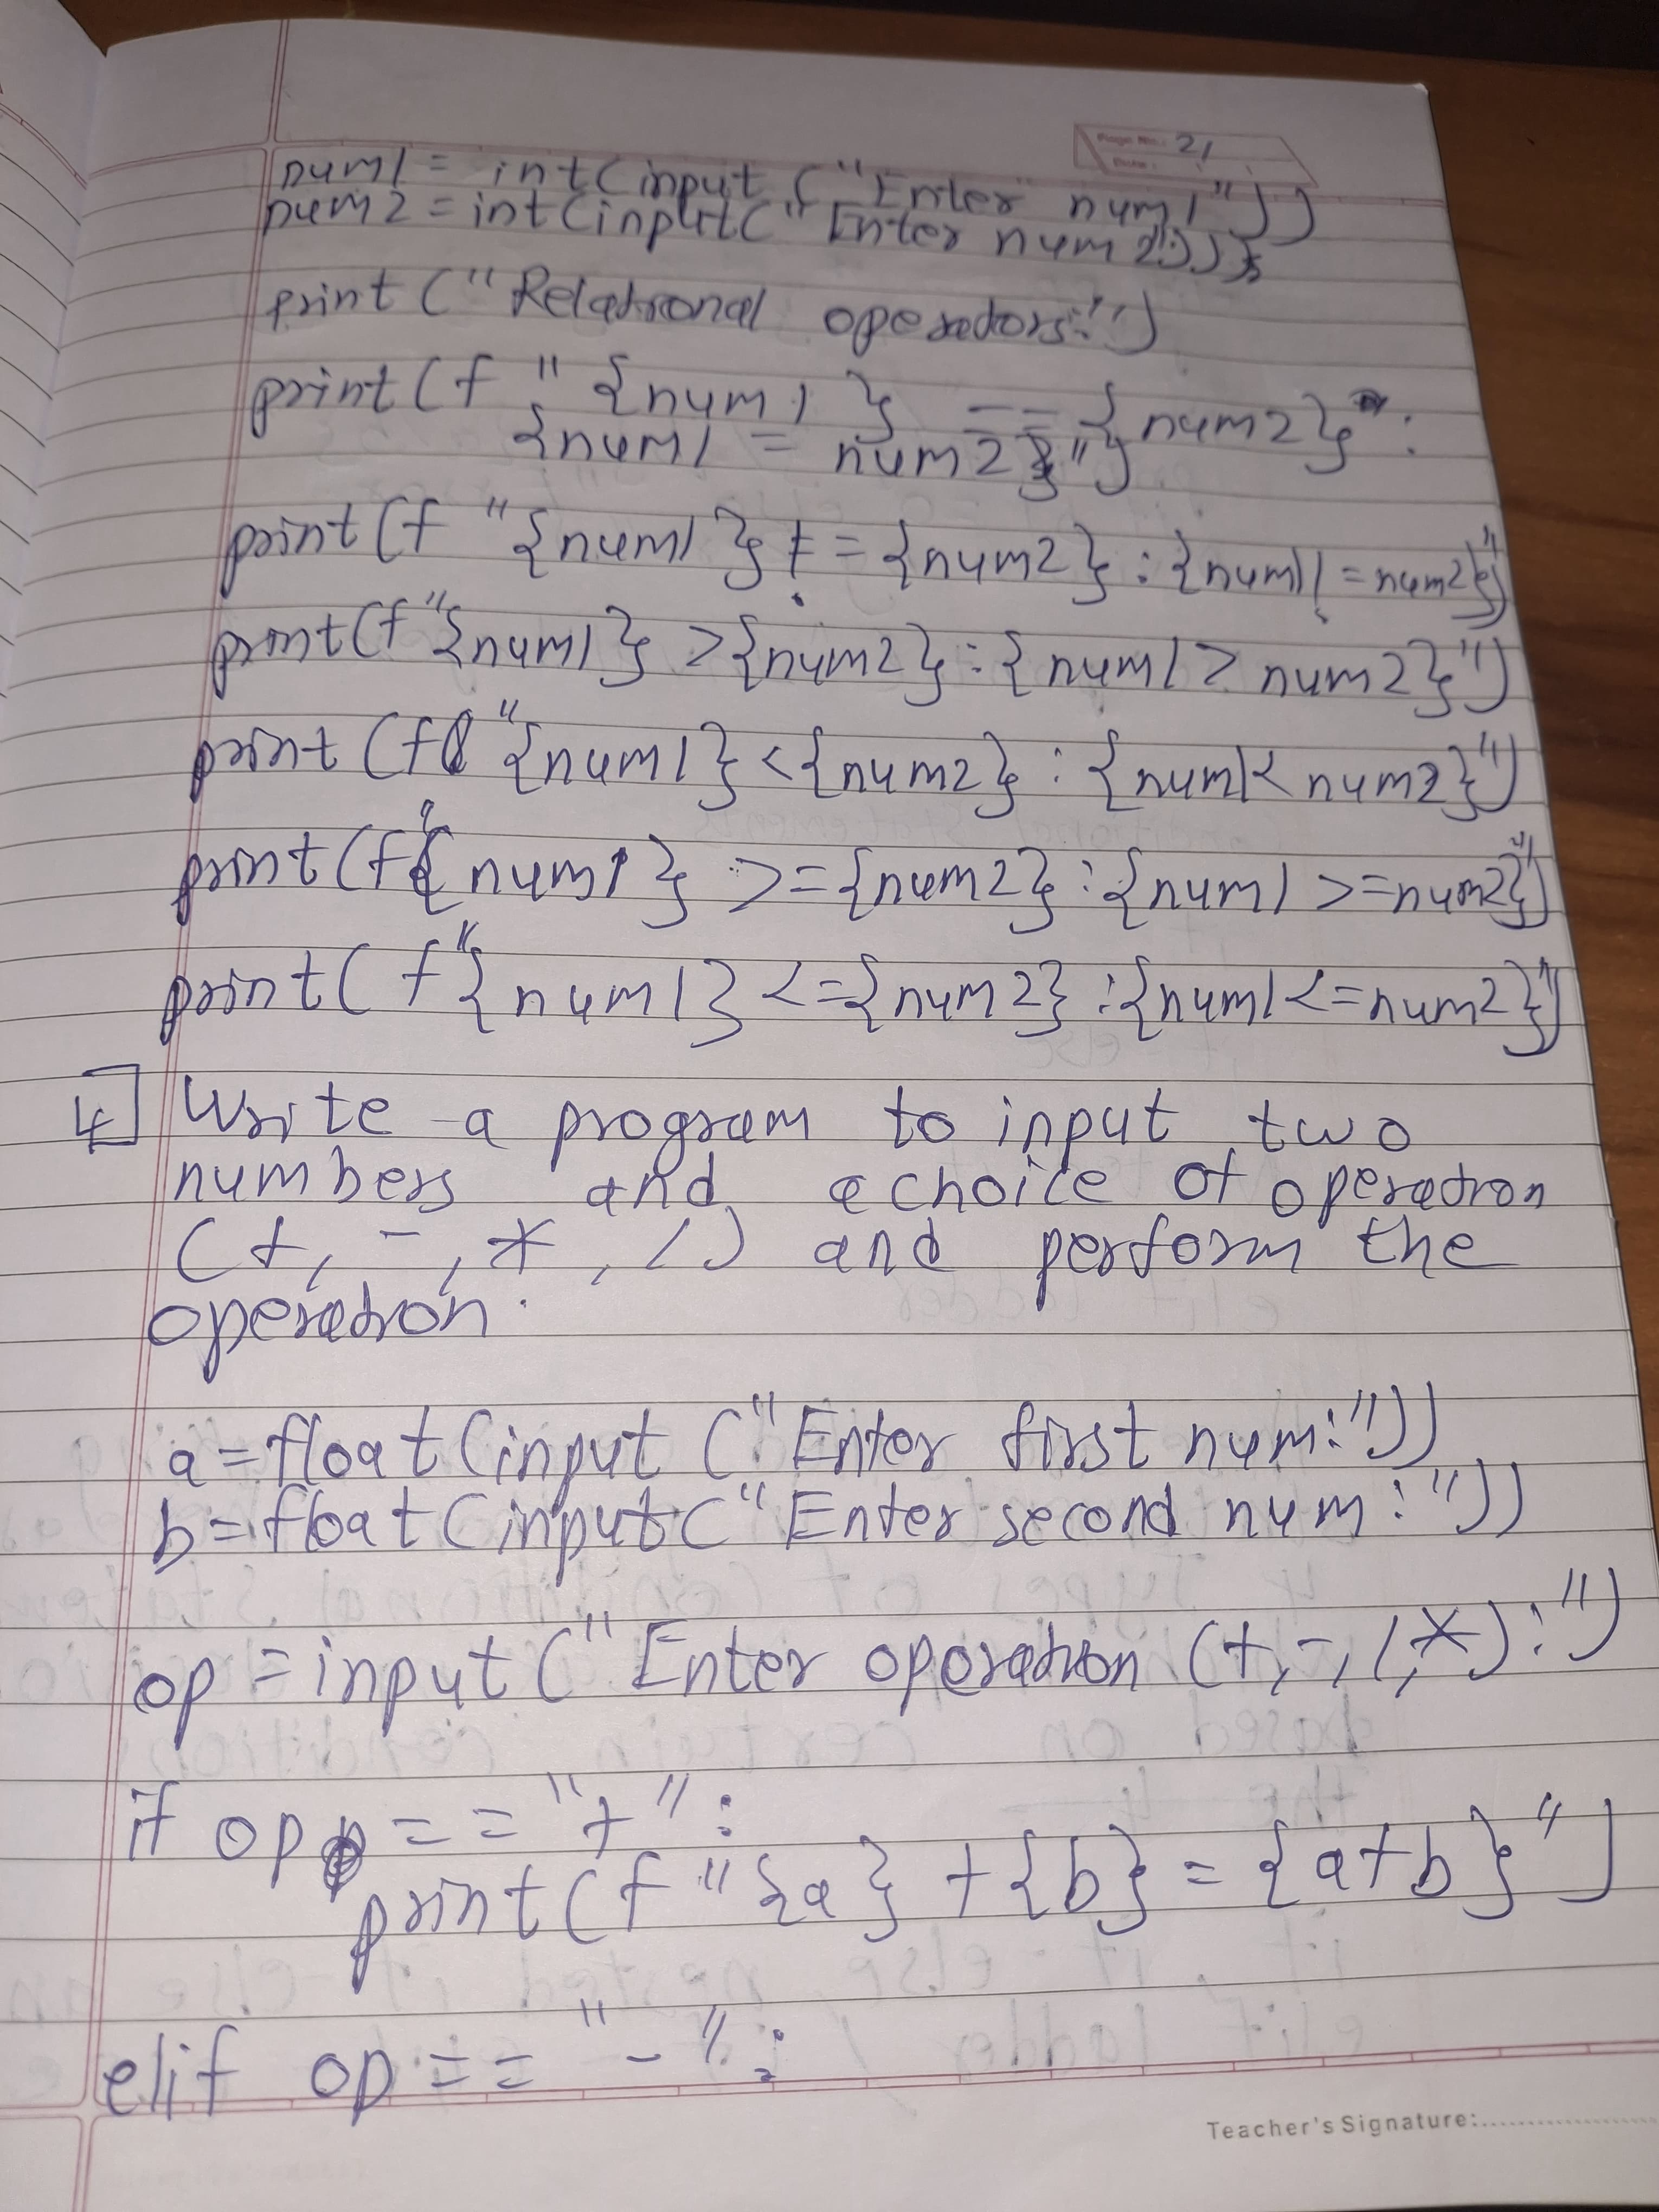 Page No.: 21
Date:
num1 = int(input ("Enter num1"))
num2 = int(input("Enter num2:"))
print ("Relational operators:")
print(f "{num1} == {num2} :
{num1 = num2}")
print(f "{num1} != {num2} : {num1!=num2}")
print(f"{num1} >{num2} : {num1 > num2}")
print (f "{num1}<{num2} : {num1< num2}")
print(f"{num1} >={num2} : {num1 >=num2}")
print( f"{num1} <={num2} :{num1 <=num2}")
4] Write a program to input two
numbers and a choice of operation
(+, -, *, /) and perform the
operation.
a=float(input ("Enter first num:"))
b=float(input("Enter second num:"))
op =input("Enter operation (+,-,/,*):")
if op == "+":
print(f "{a} +{b} = {a+b}")
elif op == "-":
Teacher's Signature: